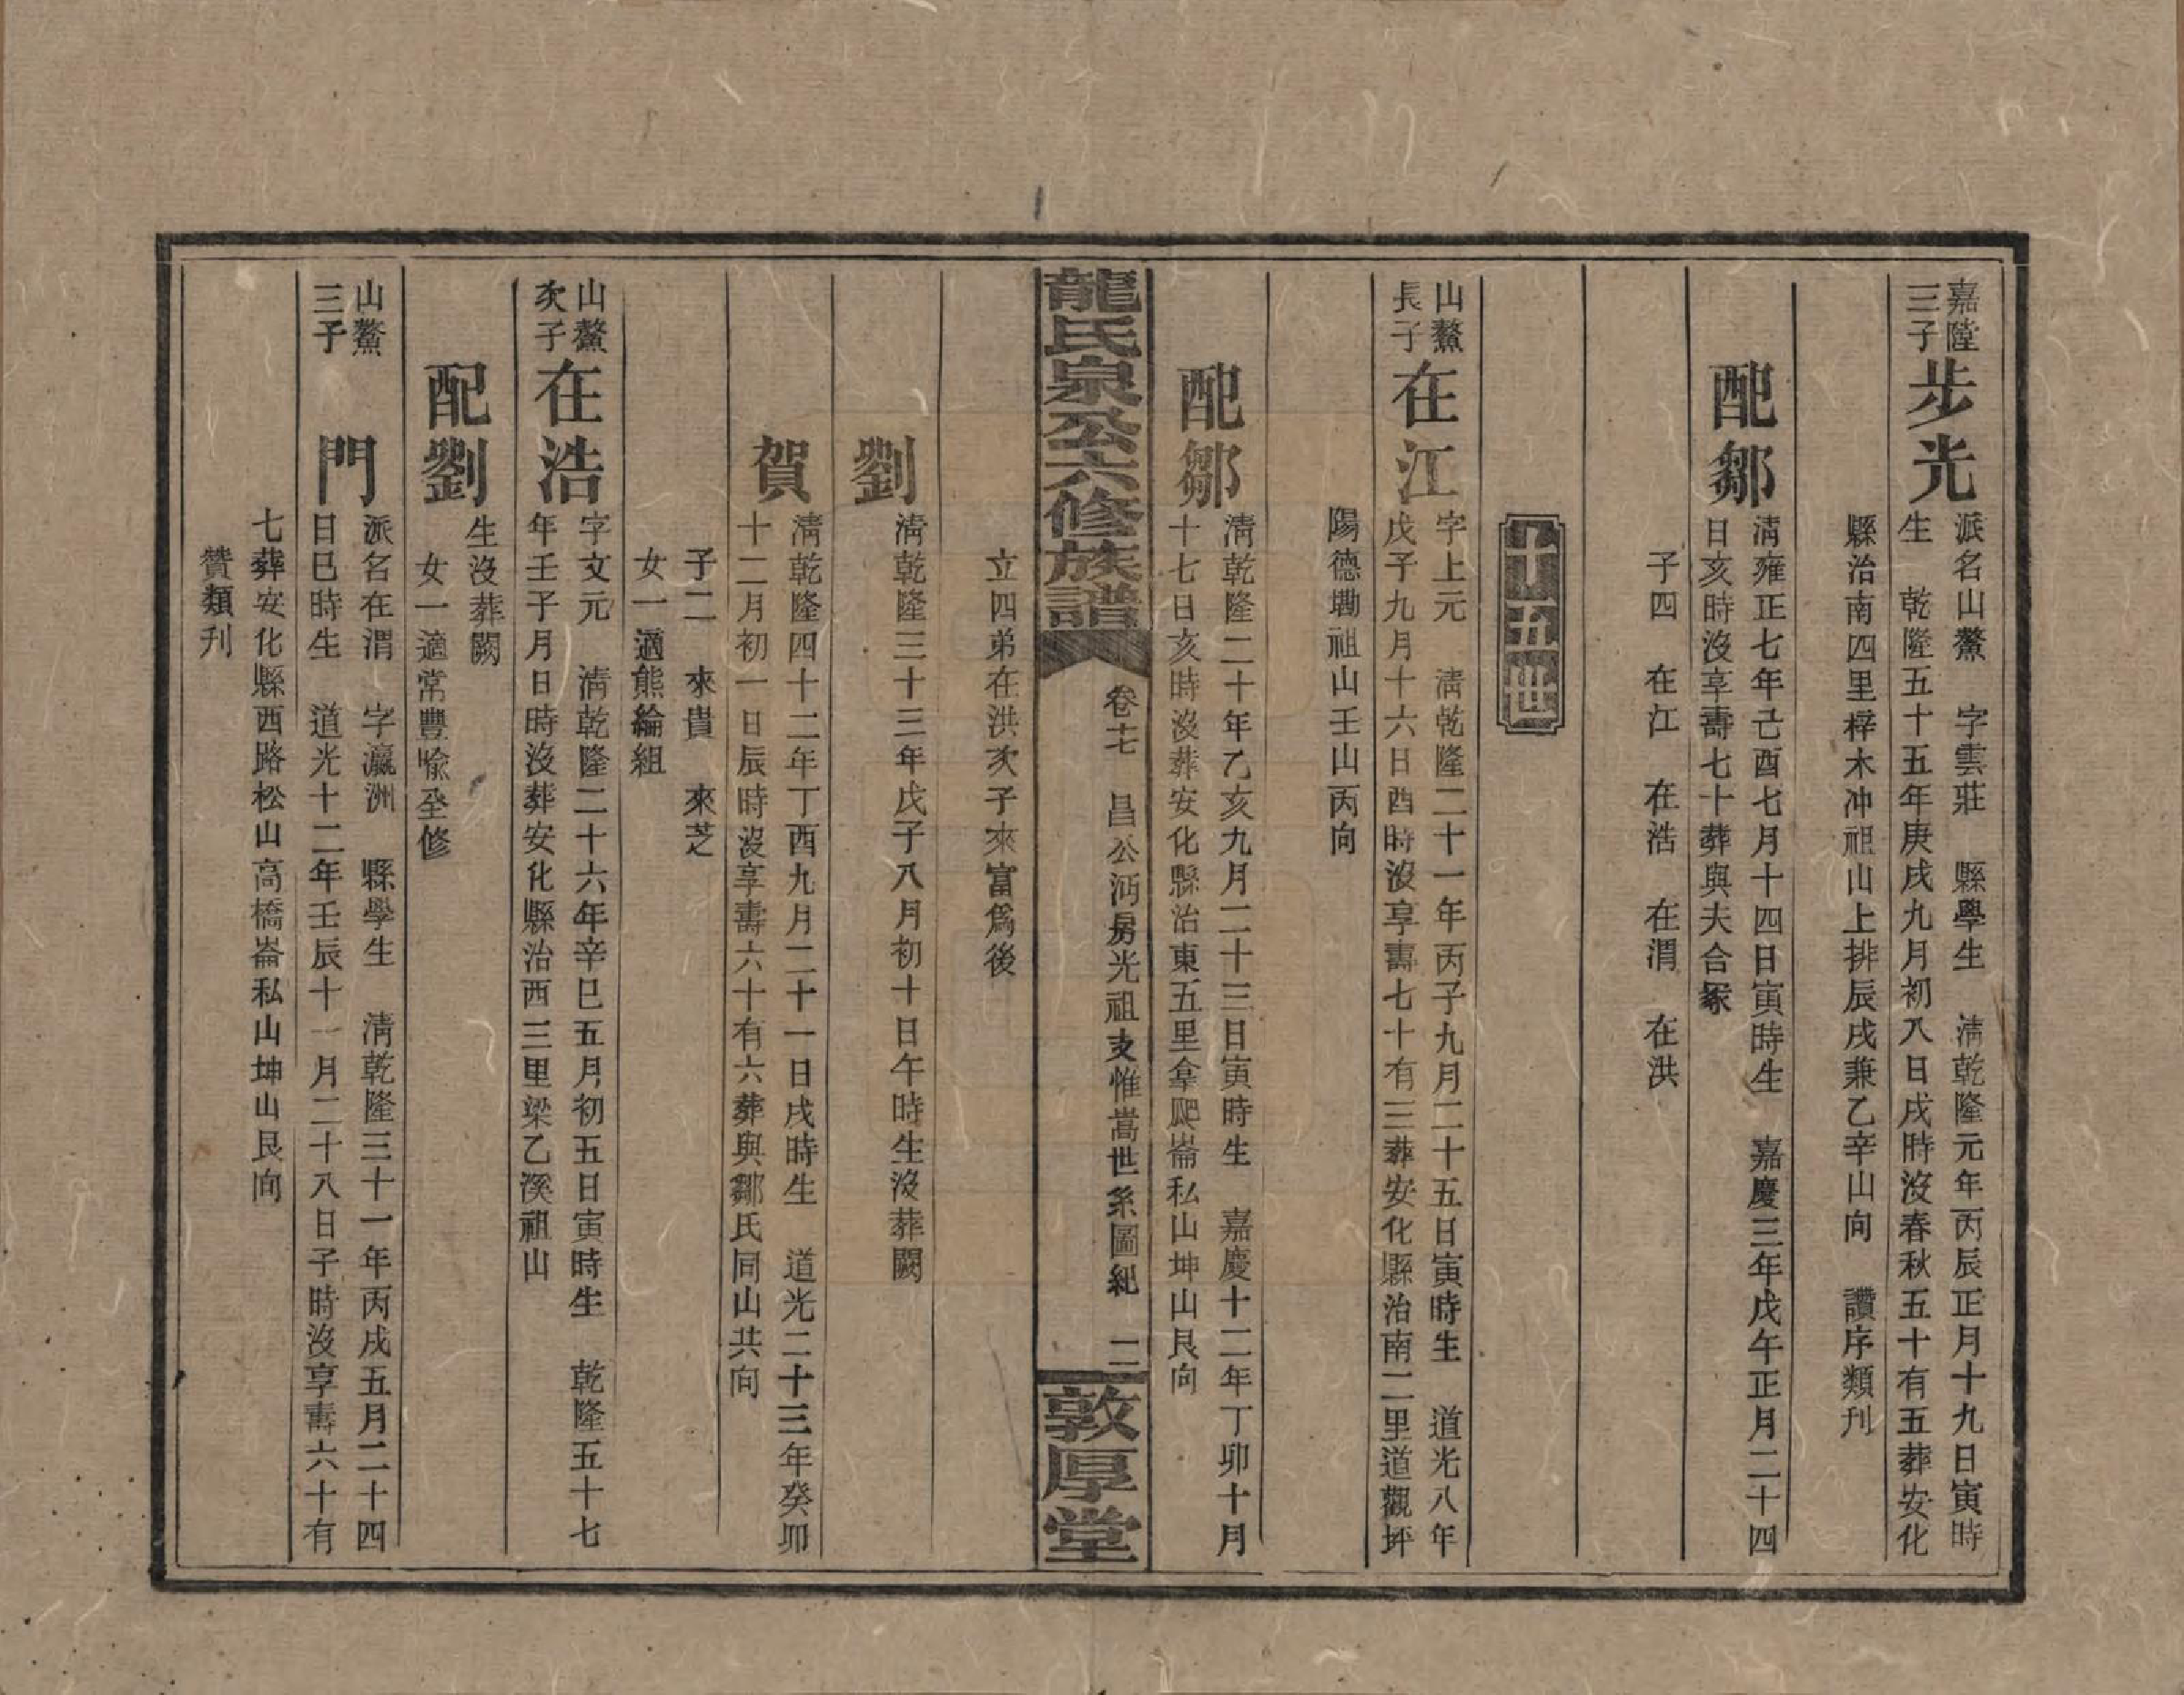 嘉陞
三子
步光
派名山鰲　字雲莊　縣學生　清乾隆元年丙辰正月十九日寅時
生　乾隆五十五年庚戌九月初八日戌時沒春秋五十有五葬安化
縣治南四里檡木冲祖山上排辰戌兼乙辛山向　讚序類刋
配鄒
清雍正七年己酉七月十四日寅時生　嘉慶三年戊午正月二十四
日亥時沒享壽七十葬與夫合冢
子四　在江　在浩　在渭　在洪
十五世
山鰲
長子
在江
字上元　清乾隆二十一年丙子九月二十五日寅時生　道光八年
戊子九月十六日酉時沒享壽七十有三葬安化縣治南二里道觀坪
陽德墈祖山壬山丙向
配鄒
清乾隆二十年乙亥九月二十三日寅時生　嘉慶十二年丁卯十月
十七日亥時沒葬安化縣治東五里拿爬崙私山坤山艮向
龍氏泉公六修族譜
卷十七　昌公沔房光祖支惟嵩世系圖紀　二
敦厚堂
立四弟在洪次子來富爲後
劉
清乾隆三十三年戊子八月初十日午時生沒葬闕
賀
清乾隆四十二年丁酉九月二十一日戌時生　道光二十三年癸卯
十二月初一日辰時沒享壽六十有六葬與鄒氏同山共向
子二　來貴　來芝
女一適熊綸組
山鰲
次子
在浩
字文元　清乾隆二十六年辛巳五月初五日寅時生　乾隆五十七
年壬子月日時沒葬安化縣治西三里梁乙溪祖山
配劉
生沒葬闕
女一適常豐喻全修
山鰲
三子
門
派名在渭　字瀛洲　縣學生　清乾隆三十一年丙戌五月二十四
日巳時生　道光十二年壬辰十一月二十八日子時沒享壽六十有
七葬安化縣西路松山高橋崙私山坤山艮向
贊類刋